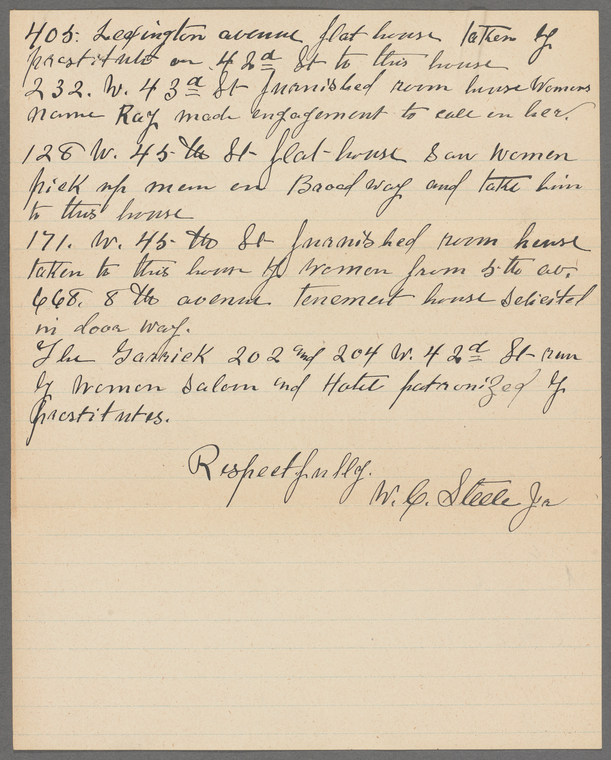 405. Lexington avenue flat house taken by
prostitute on 42d St to this house
232. W. 43d St furnished room house Womens
name Ray made engagement to call on her.
128 W. 45th St flat-house Saw Women
pick up men on Broadway and take him
to this house
171. W. 45th St furnished room house
taken to this house by women from 5th av.
668. 8th avenue tenement house Solicited
in door way.
The Garrick 202 and 204 W. 42d St run
by women Saloon and Hotel patronized by
prostitutes.
Respectfully.
W. C. Steele Jr